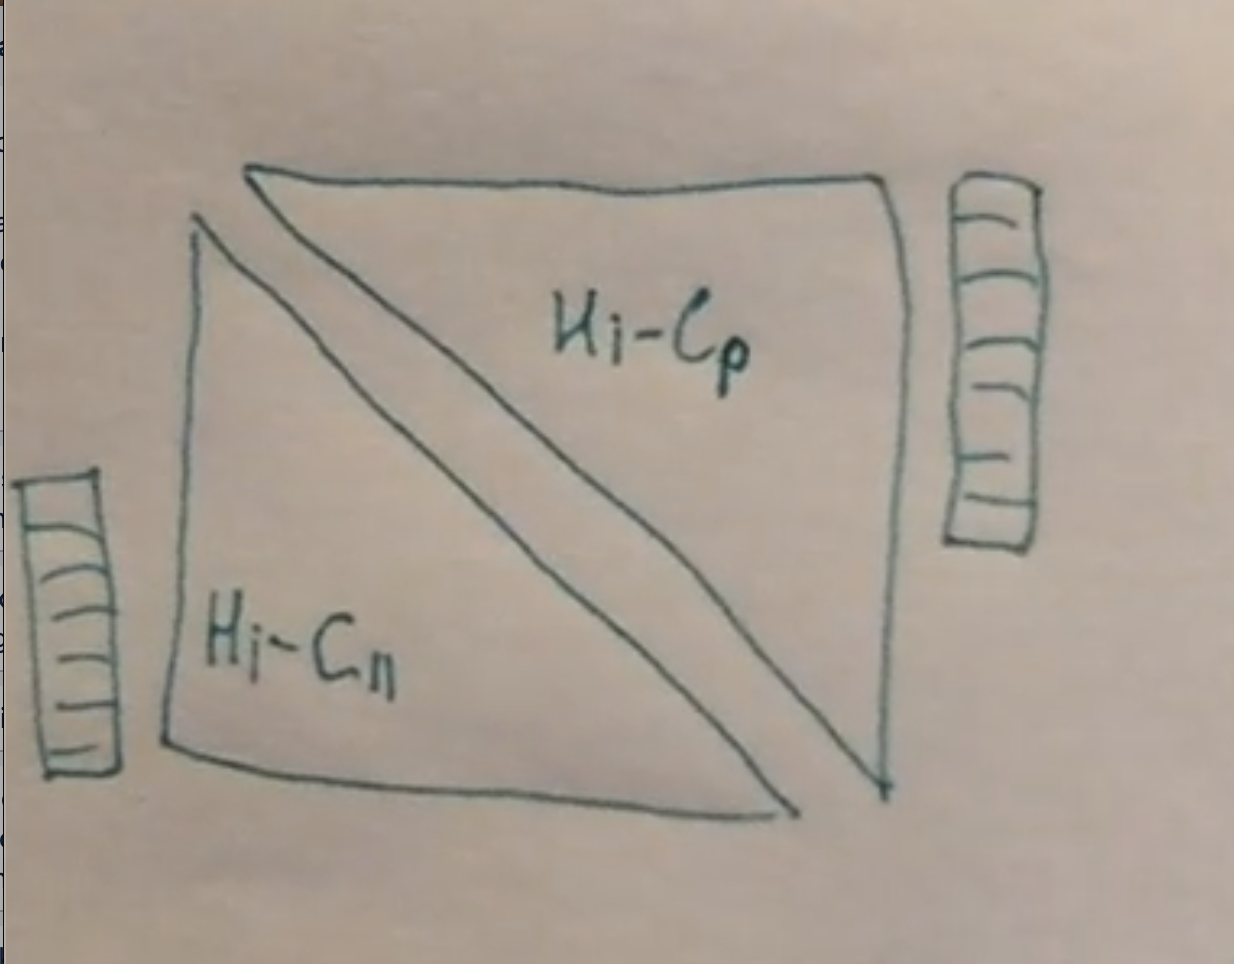 Hi-Cp
Hi-Cn